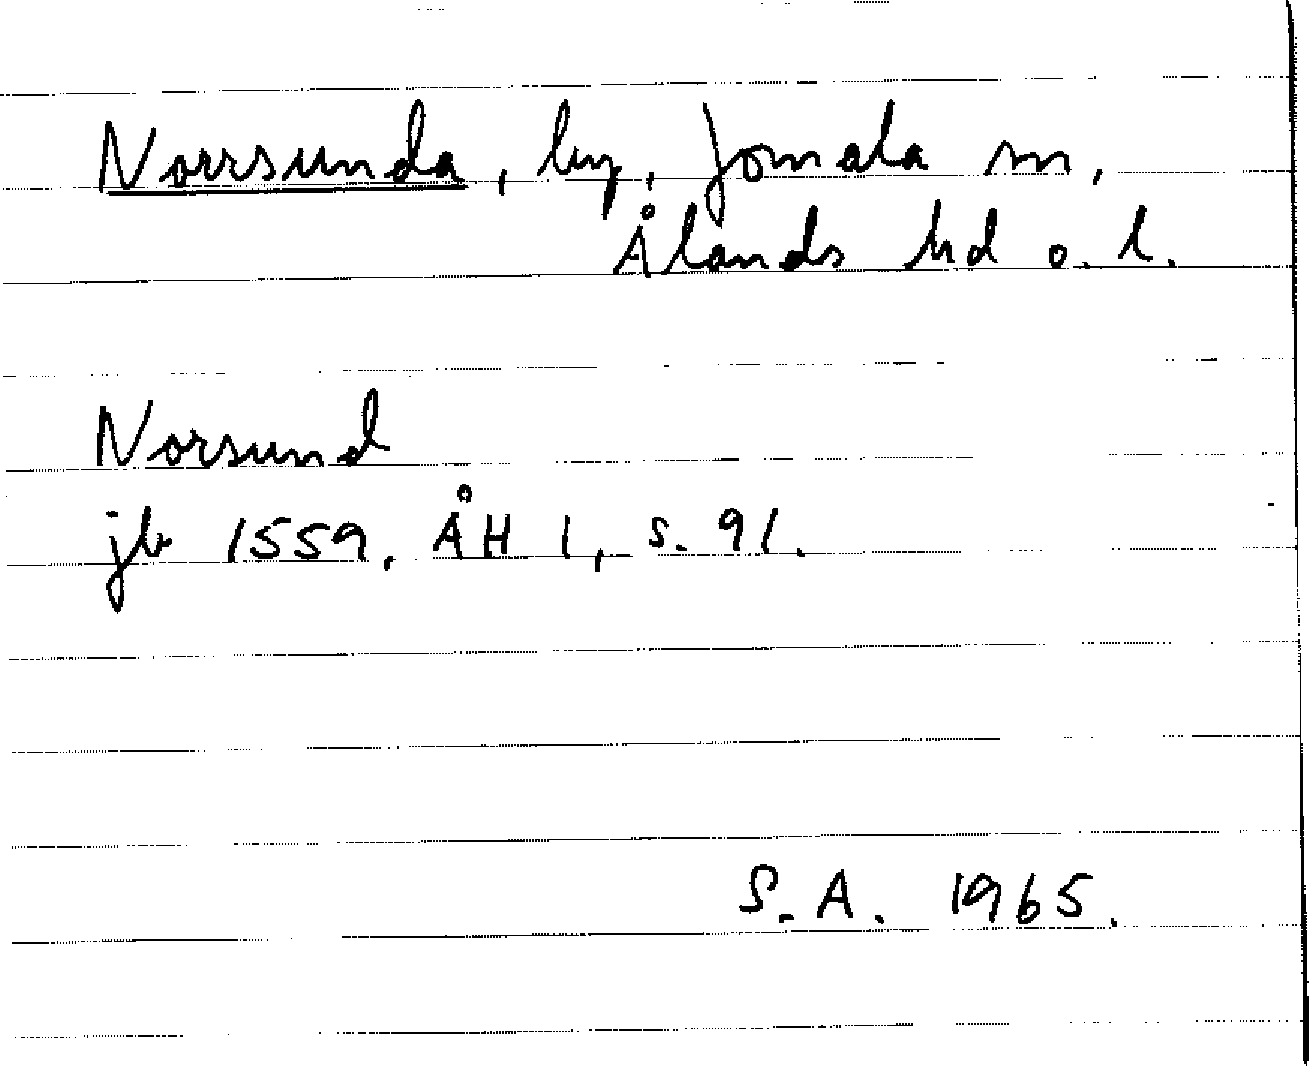 Norrsunda, by, Jomala sn,
Ålands hd o. l.
Norsund
jb 1559. ÅH 1, s. 91.
S. A. 1965.